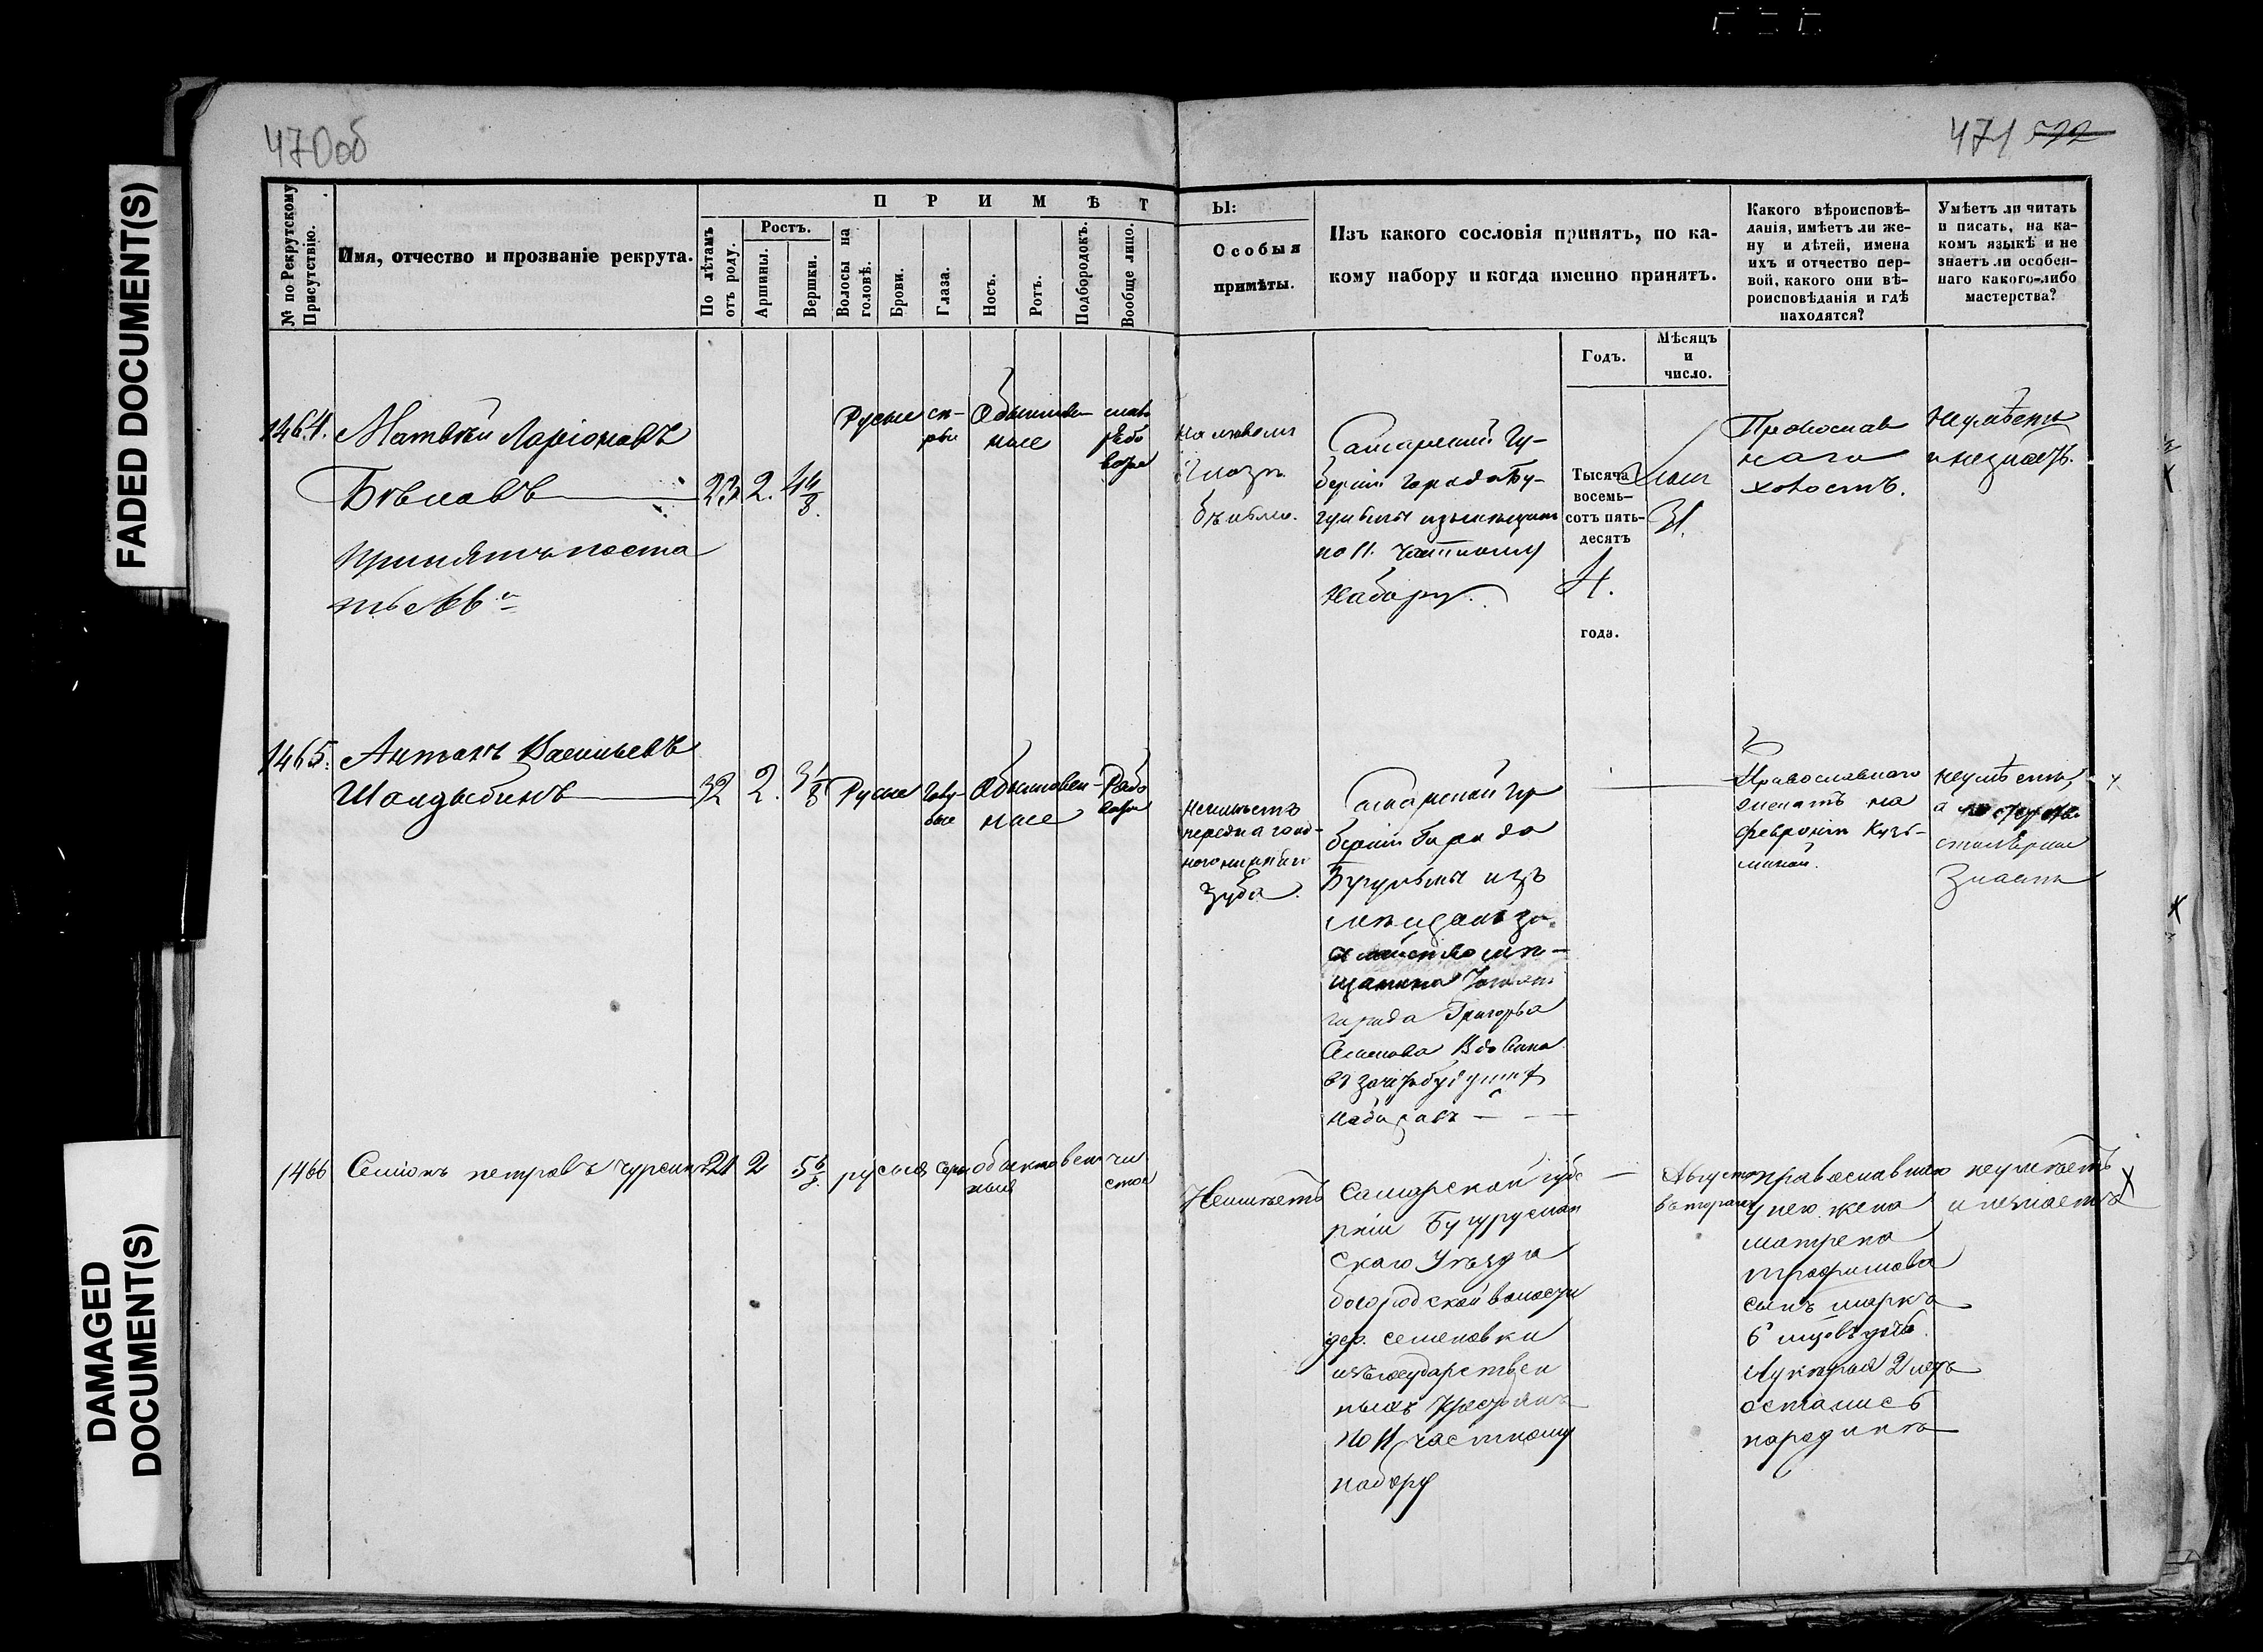 FADED DOCUMENT(S)
DAMAGED
DOCUMENT(S)
470об
471 522
№ по Рекрутскому
Присутствію.
Имя, отчество и прозваніе рекрута.
П Р И М Ѣ Т
По лѣтамъ
отъ роду.
Ростъ.
Аршины.
Вершки.
Волосы на
головѣ.
Брови.
Глаза.
Носъ.
Ротъ.
Подбородокъ.
Вообще лицо.
Ы:
Особыя
примѣты.
Изъ какого сословія принятъ, по ка-
кому набору и когда именно принятъ.
Годъ.
Мѣсяцъ
и
число.
Какого вѣроисповѣ-
данія, имѣетъ ли же-
ну и дѣтей, имена
ихъ и отчество пер-
вой, какого они вѣ-
роисповѣданія и гдѣ
находятся?
Умѣетъ ли читать
и писать, на ка-
комъ языкѣ и не
знаетъ ли особен-
наго какого-либо
мастерства?
1464.
Матвѣй Ларіоновъ
Бѣловъ
принятъ
23 2. 4 4/8.
Русые
сѣ-
рые
Обыкновен
ные
рябо
вато
на лѣвомъ
глазѣ
бѣльмо.
Самарской Гу-
берніи города Бу-
гульмы изъ мѣщанъ
по 11. частному
Набору.
Тысяча
восемь-
сотъ пять-
десятъ
4.
года.
31.
Православ
наго
холостъ.
Неумѣетъ
и незнаетъ.
1465.
Антонъ Васильевъ
Шалдыбинъ
32 2. 3 1/8
Русые
Голу-
бые
Обыкновен-
ные
Рябо
вато
Неимѣетъ
передняго
зуба.
Самарской Гу
берніи Города
Бугульмы изъ
мѣщанъ за
семейство мѣ-
щанина
города Григорья
Вдовина
въ зачетъ будущихъ
наборовъ
Православнаго
женатъ на
Февроніи Кузь-
миной.
неумѣетъ,
а
столярное
Знаетъ
1466
Семіонъ петровъ чурсинъ
21 2 5 6/8
русыя
серы
обыкновен
ныя
чи
стое
Неимѣетъ
Самарской губе
рніи Бугуруслан
скаго Уѣзда
богородской волости
дер. семеновки
изъ государствен
ныхъ Крестьянъ
по 11 частному
набору
Августа
втораго
православнаго
у него жена
матрена
трофимова
сынъ марка
остались
народинѣ
неумѣетъ
и незнаетъ